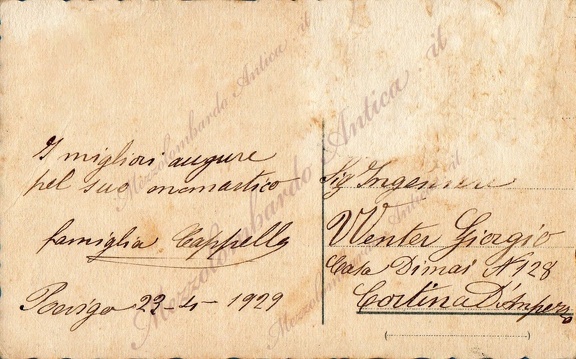 I migliori augure
pel suo onomastico
famiglia Cappello
Rovigo 23-4-1929
Sig Ingeniere
Wenter Giorgio
Casa Dimai N 128
Cortina D'Ampezzo
Mezzolombardo Antica .it
Mezzolombardo Antica .it
Mezzolombardo Antica .it